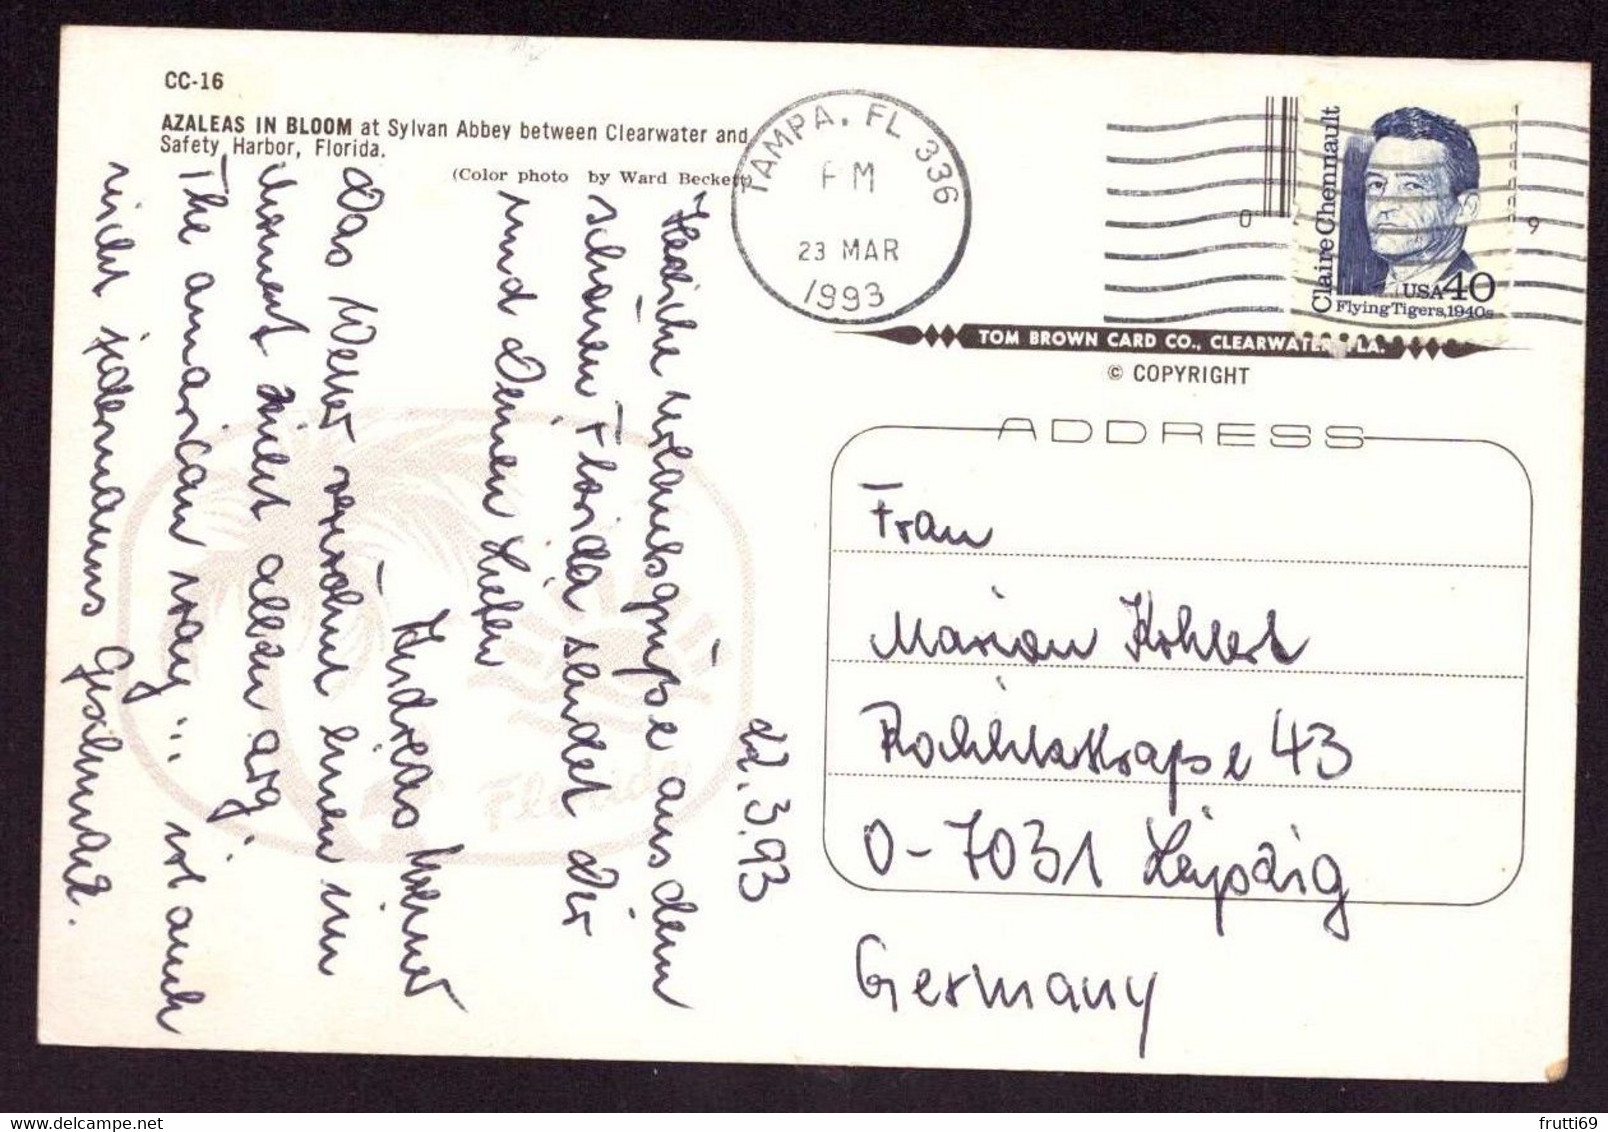 CC-16
AZALEAS IN BLOOM at Sylvan Abbey between Clearwater and
Safety Harbor, Florida.
(Color photo by Ward Beckett)
TAMPA, FL 336
PM
23 MAR
1993
0 9
Claire Chennault
USA 40
Flying Tigers, 1940s
TOM BROWN CARD CO., CLEARWATER, FLA.
© COPYRIGHT
22.3.93
Herzliche Urlaubsgrüße aus dem
schönen Florida sendet Dir
und Deinen Lieben
Andreas
Das Wetter verwöhnt einen im
Moment nicht allzu arg,
The american way ... ist auch
nicht jedermanns Geschmack.
Florida
ADDRESS
Frau
Marion Kohlert
43
O-7031 Leipzig
Germany
frutti69